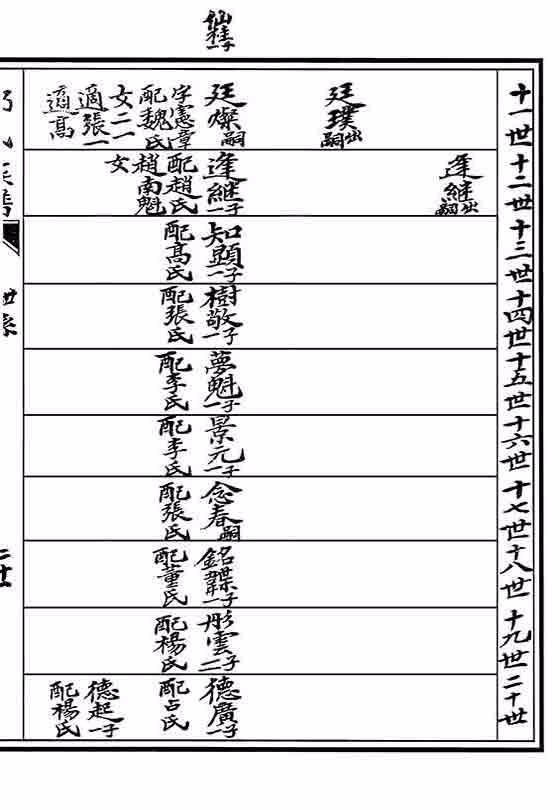 仙桂
一子
十一世
廷璞
出嗣
廷燦
嗣
字憲章
配魏氏
女二一
適張一
適高
十二世
逢繼
出嗣
逢繼
一子
配趙氏
趙南魁
女
十三世
知顯
一子
配高氏
十四世
樹敬
一子
配張氏
十五世
夢魁
一子
配李氏
十六世
景元
一子
配李氏
十七世
念春
嗣
配張氏
十八世
銘韘
一子
配董氏
十九世
彤雲
二子
配楊氏
二十世
德廣
一子
配占氏
德起
一子
配楊氏
世系